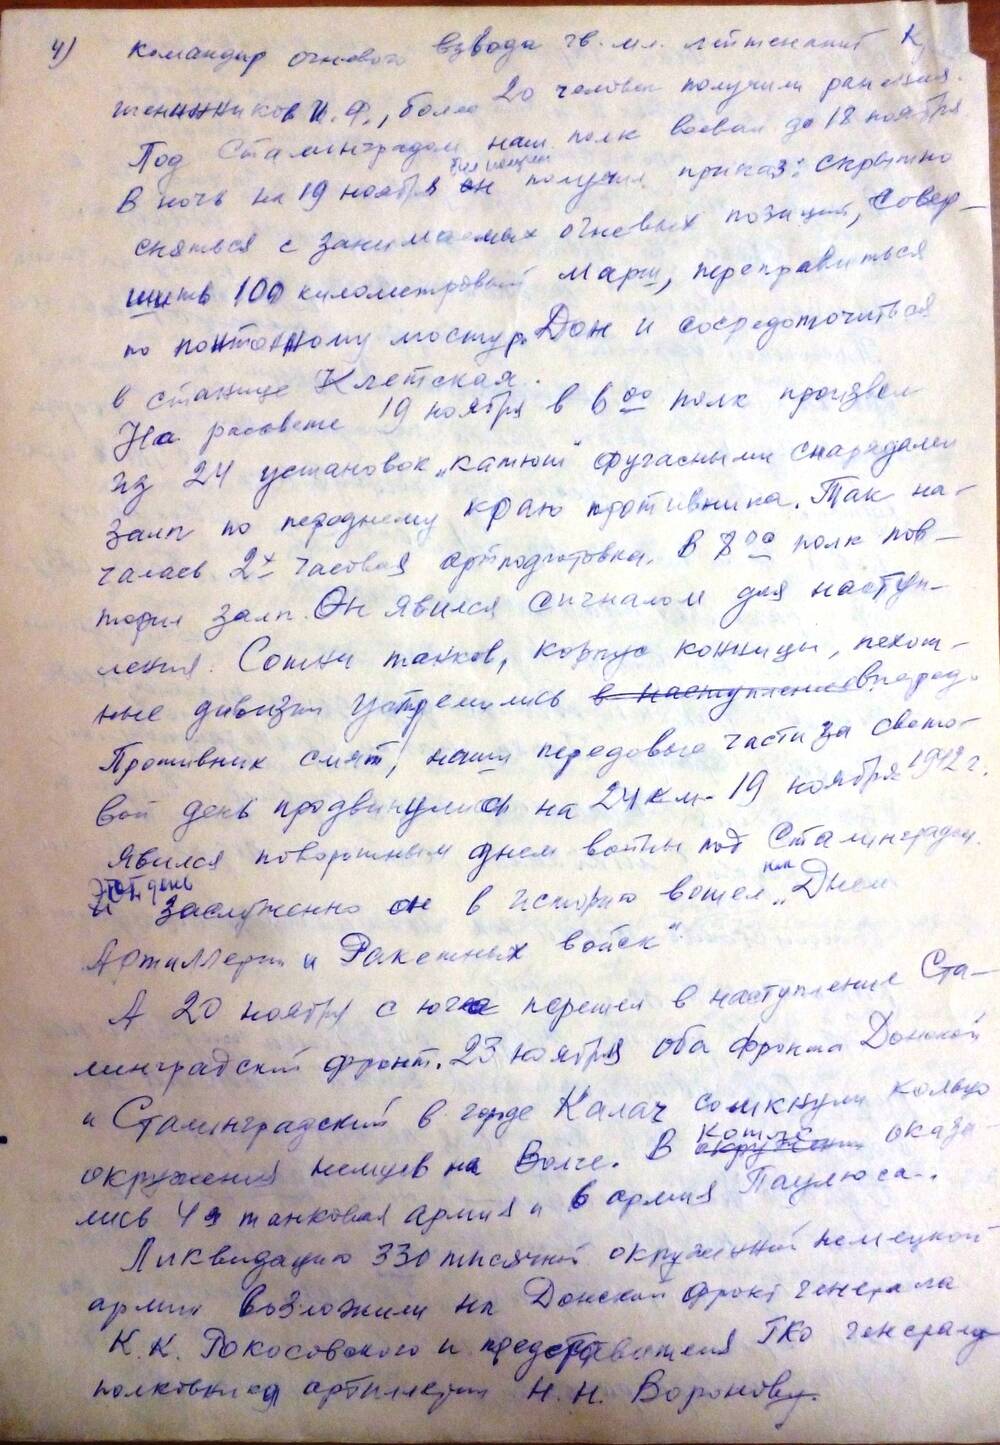 4) командир огневого взвода гв. мл. лейтенант К
женников И.Ф., более 20 человек получили ранения.
Под Сталинградом наш полк воевал до 18 ноября.
В ночь на 19 ноября он получил приказ: скрытно
сняться с занимаемых огневых позиций, совер-
шить 100 километровый марш, переправиться
по понтонному мосту р. Дон и сосредоточиться
в станице Клетская.
На рассвете 19 ноября в 6 00 полк произвел
из 24 установок „катюш" фугасными снарядами
залп по переднему краю противника. Так на-
чалась 2х часовая артподготовка. В 8 00 полк пов-
торил залп. Он явился сигналом для наступ-
ления. Сотни танков, корпус конницы, пехот-
ные дивизии устремились в наступление вперед.
Противник смят, наши передовые части за свето-
вой день продвинулись на 24 км. 19 ноября 1942 г.
явился поворотным днем войны под Сталинградом.
Этот день
и заслуженно он в историю вошел как „Днем
Артиллерии и Ракетных войск".
А 20 ноября с юга перешел в наступление Ста-
линградский фронт. 23 ноября оба фронта Донской
и Сталинградский в городе Калач сомкнули кольцо
окружения немцев на Волге. В котле окружении оказа-
лись 4я танковая армия и 6 армия Паулюса.
Ликвидацию 330 тысячной окруженной немецкой
армии возложили на Донской фронт генерала
К.К. Рокосовского и представителя ГКО генерала
полковника артиллерии Н.Н. Воронову.